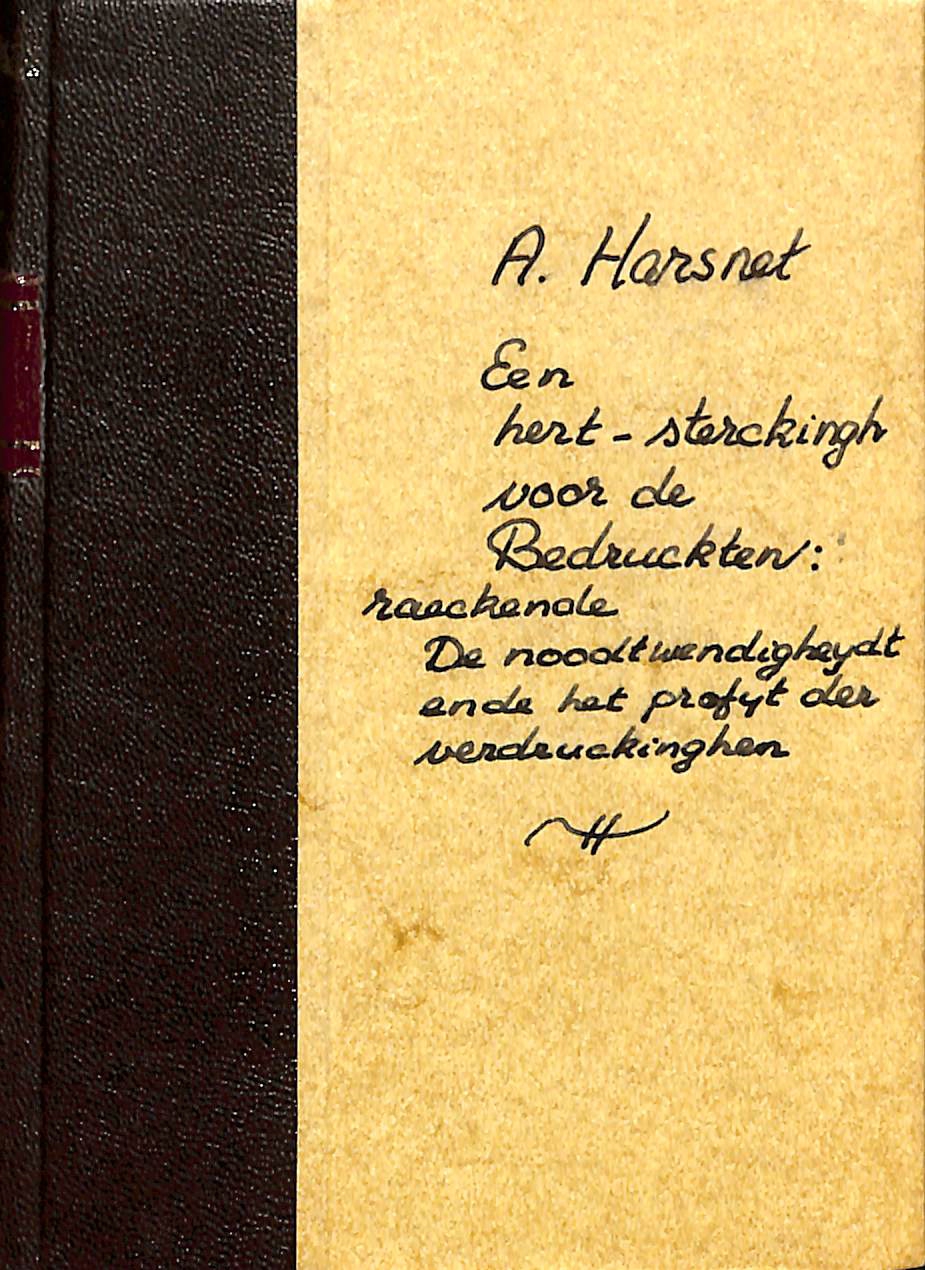 A. Harsnet
Een
hert-sterckingh
voor de
Bedruckten:
raeckende
De noodtwendigheydt
ende het profyt der
verdruckinghen